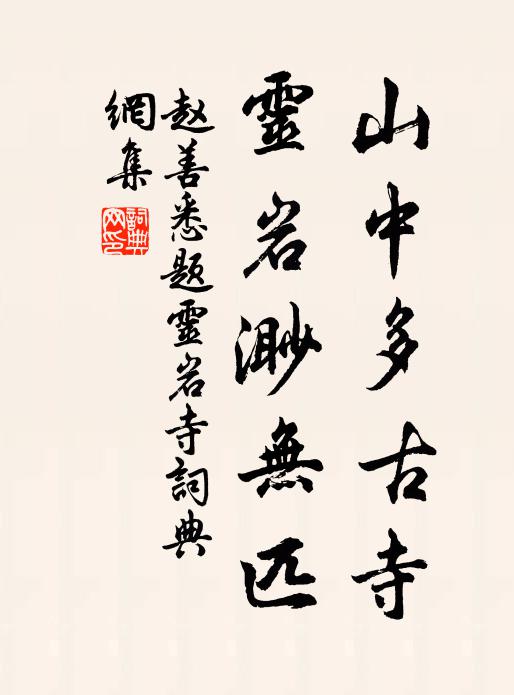 山中多古寺
靈岩渺無匹
赵善悉题靈岩寺詞典
網集
詞典
网印